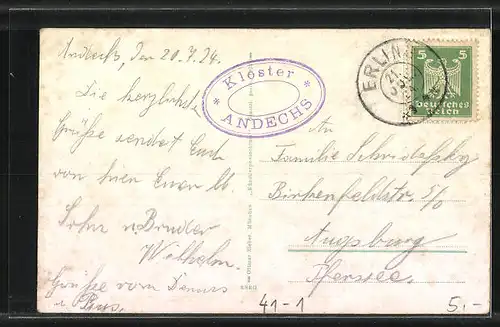 Andechs, den 20.7.24.
Die herzlichst
Grüße sendet Euch
von hier Euer lb.
Sohn u. Bruder
Wilhelm.
Grüße vom
Kloster
ANDECHS
ERLIN
5 5
Deutsches
Reich
An
Familie
Birkenfeldstr. 5/0
Augsburg
Pfersee.
41-1
5.-